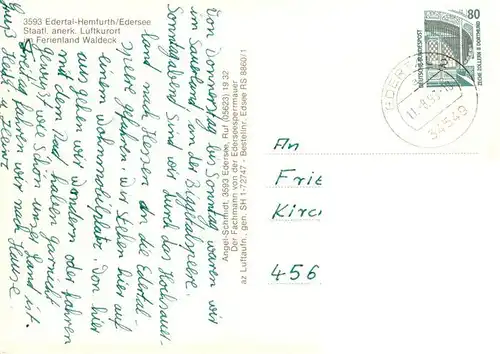 3593 Edertal-Hemfurth/Edersee
Staatl. anerk. Luftkurort
im Ferienland Waldeck
Von Donnerstag bis Sonntag waren wir
im Sauerland an der Biggetalsperre.
Sonntagabend sind wir durch das Hochsauer-
land nach Hessen an die Edertal-
sperre gefahren. Wir stehen hier auf
einem Wohnmobilplatz. Von hier
aus gehen wir wandern oder fahren
mit dem Rad. Haben garnicht
gewußt wie schön unser Land ist.
Freitag fahren wir nach Hause.
Gruß Heidi u. Heinz
Angel-Schmidt, 3593 Edersee, Ruf (05623) 19 32
Der Fachmann von der Ederseesperrmauer
az Luftaufn., gen. SH 1-72747 - Bestellnr. Edsee RS 8860/1
80
DEUTSCHE BUNDESPOST
ZECHE ZOLLERN II DORTMUND
EDER
34549
An
Frie
Kirc
456